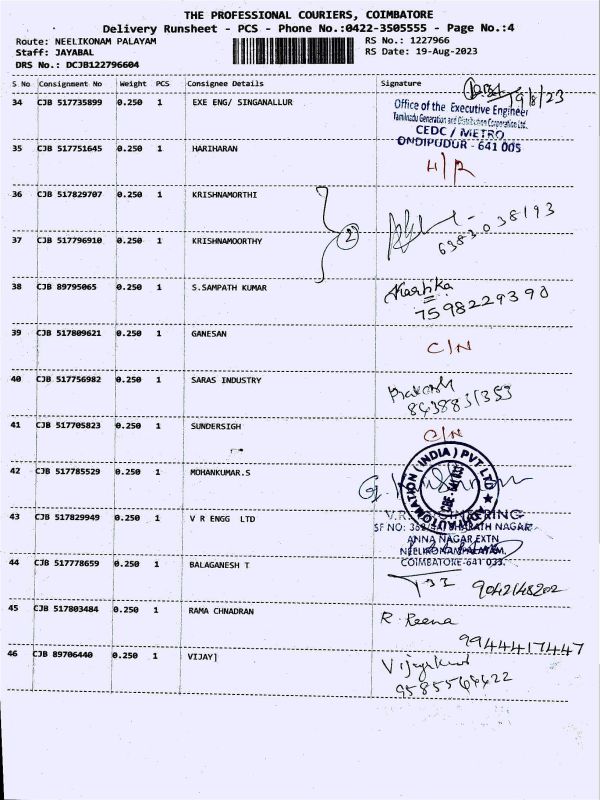 THE PROFESSIONAL COURIERS, COIMBATORE
Delivery Runsheet - PCS - Phone No.:0422-3505555 - Page No.:4
Route: NEELIKONAM PALAYAM
Staff: JAYABAL
DRS No.: DCJB122796604
RS No.: 1227966
RS Date: 19-Aug-2023
S No Consignment No Weight PCS Consignee Details Signature
34 CJB 517735899 0.250 1 EXE ENG/ SINGANALLUR
19/8/23
Office of the Executive Engineer
Tamilnadu Generation and Distribution Corporation Ltd.
CEDC / METRO
ONDIPUDUR - 641 005
35 CJB 517751645 0.250 1 HARIHARAN H/R
36 CJB 517829707 0.250 1 KRISHNAMORTHI
2
6383038193
37 CJB 517796910 0.250 1 KRISHNAMOORTHY
38 CJB 89795065 0.250 1 S.SAMPATH KUMAR Karthika
7598229390
39 CJB 517809621 0.250 1 GANESAN C/N
40 CJB 517756982 0.250 1 SARAS INDUSTRY Prakash
8438831353
41 CJB 517705823 0.250 1 SUNDERSIGH C/N
42 CJB 517785529 0.250 1 MOHANKUMAR.S
AUTOMATION (INDIA) PVT LTD
43 CJB 517829949 0.250 1 V R ENGG LTD
BHARATH NAGAR
ANNA NAGAR EXTN
NEELIKONAMPALAYAM,
COIMBATORE-641 033.
44 CJB 517778659 0.250 1 BALAGANESH T
9042148202
45 CJB 517803484 0.250 1 RAMA CHNADRAN R. Reena
9944417447
46 CJB 89706440 0.250 1 VIJAY] Vijayakumar
9585564622